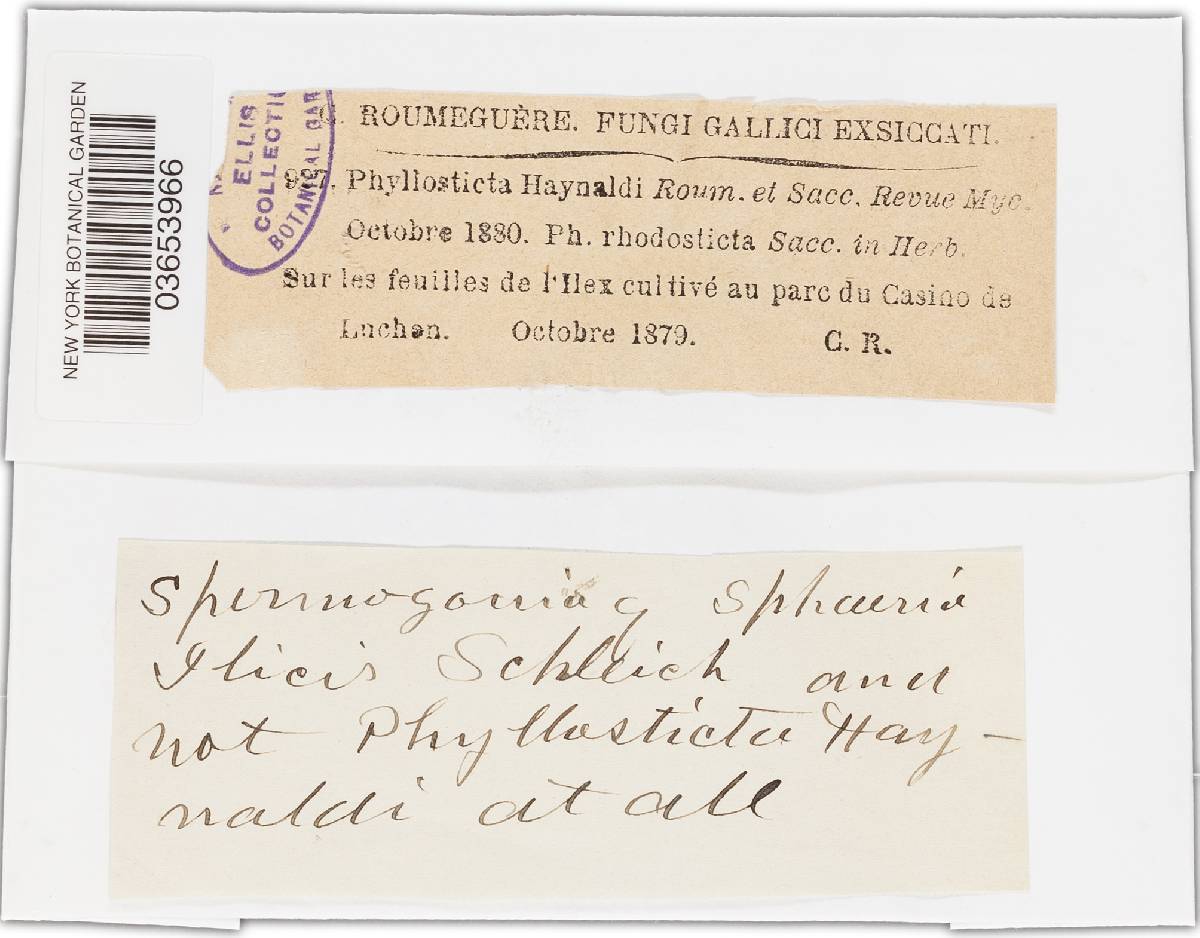 NEW YORK BOTANICAL GARDEN
03653966
ELLIS
COLLECTI
BOTANICAL GAR
C. ROUMEGUÈRE. FUNGI GALLICI EXSICCATI.
Phyllosticta Haynaldi Roum. et Sacc. Revue Myc.
Octobre 1880. Ph. rhodosticta Sacc. in Herb.
Sur les feuilles de l'Ilex cultivé au parc du Casino de
Luchon. Octobre 1879. C. R.
Spermogonia of Sphaeria
Ilicis Schleich and
not Phyllosticta Hay-
naldi at all